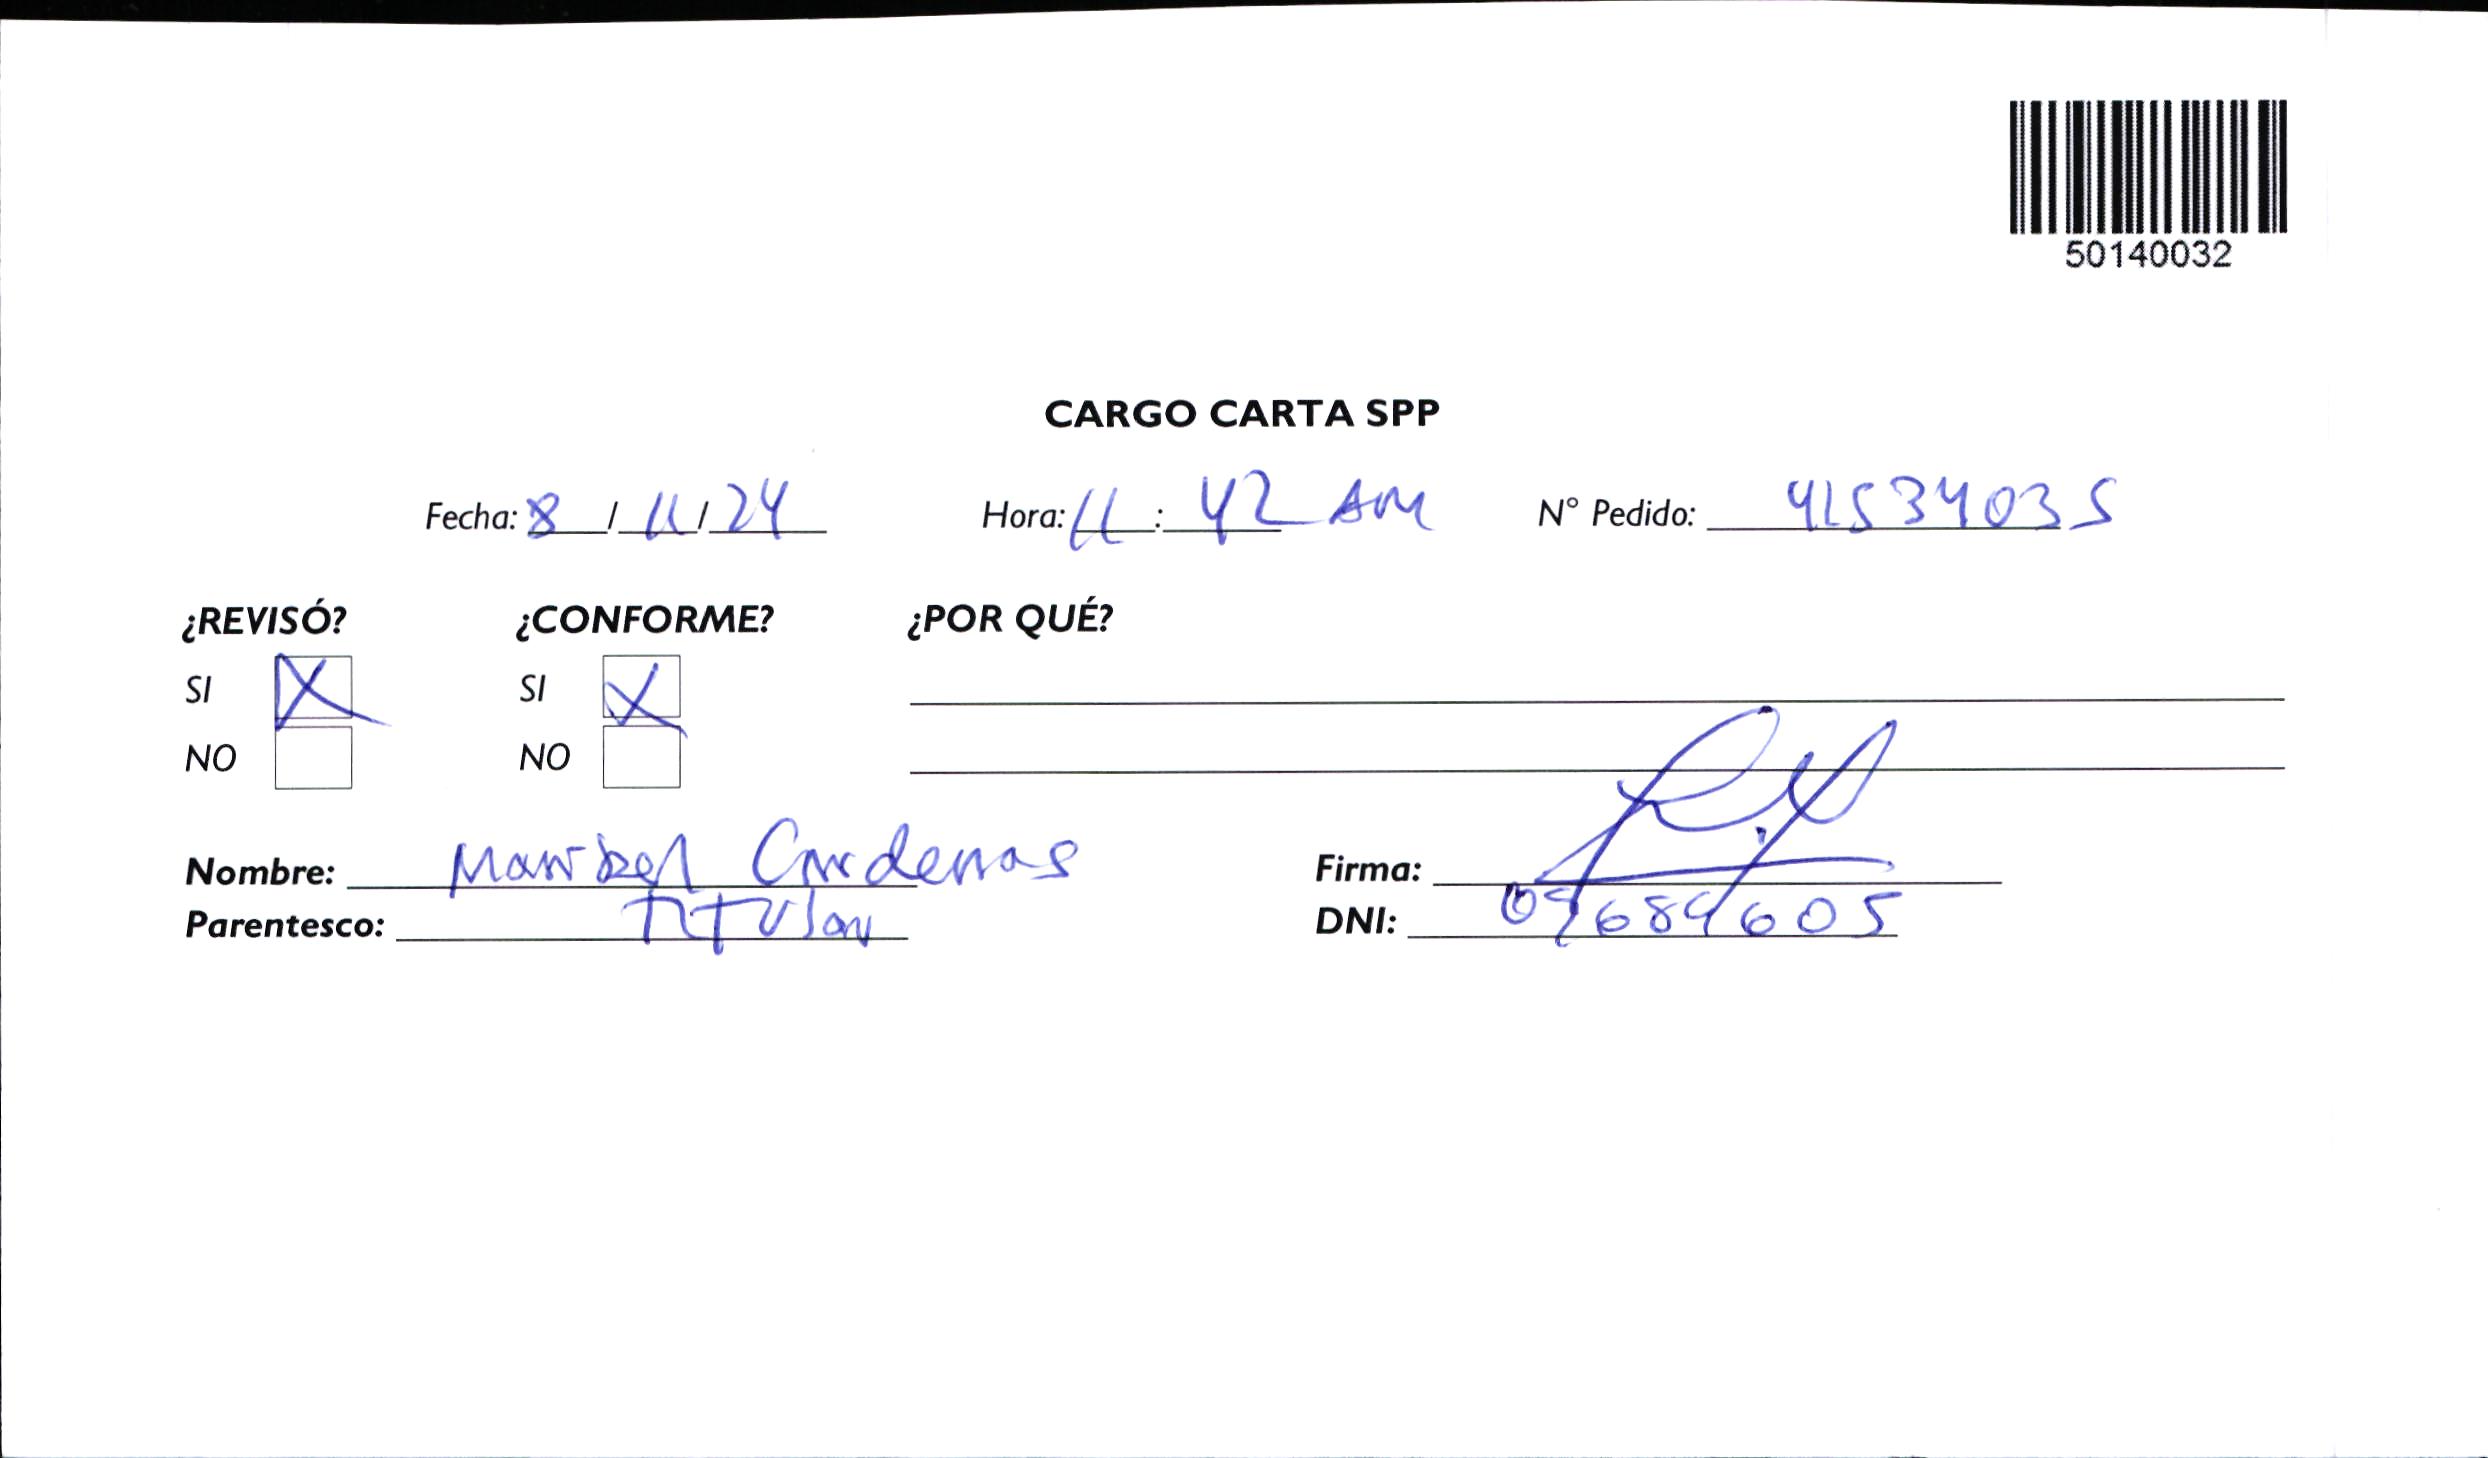 50140032
CARGO CARTA SPP
Fecha: 8 / 11 / 24 Hora: 11 : 42 AM N° Pedido: 41534035
¿REVISÓ? ¿CONFORME? ¿POR QUÉ?
SI X SI X
NO NO
Nombre: Maribel Cardenas Firma:
Parentesco: Titular DNI: 09689605